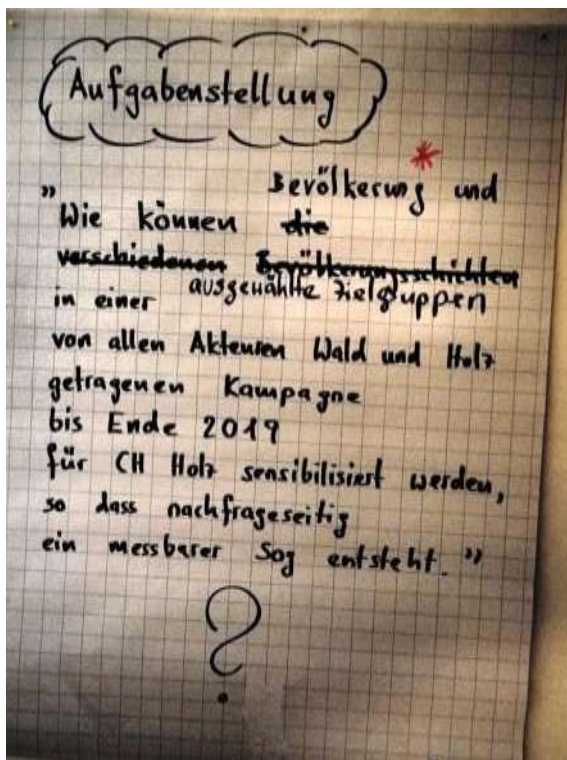 Aufgabenstellung
*
Bevölkerung und
"Wie können die
verschiedenen Bevölkerungsschichten
ausgewählte Zielgruppen
in einer
von allen Akteuren Wald und Holz
getragenen Kampagne
bis Ende 2019
für CH Holz sensibilisiert werden,
so dass nachfrageseitig
ein messbarer Sog entsteht."
?